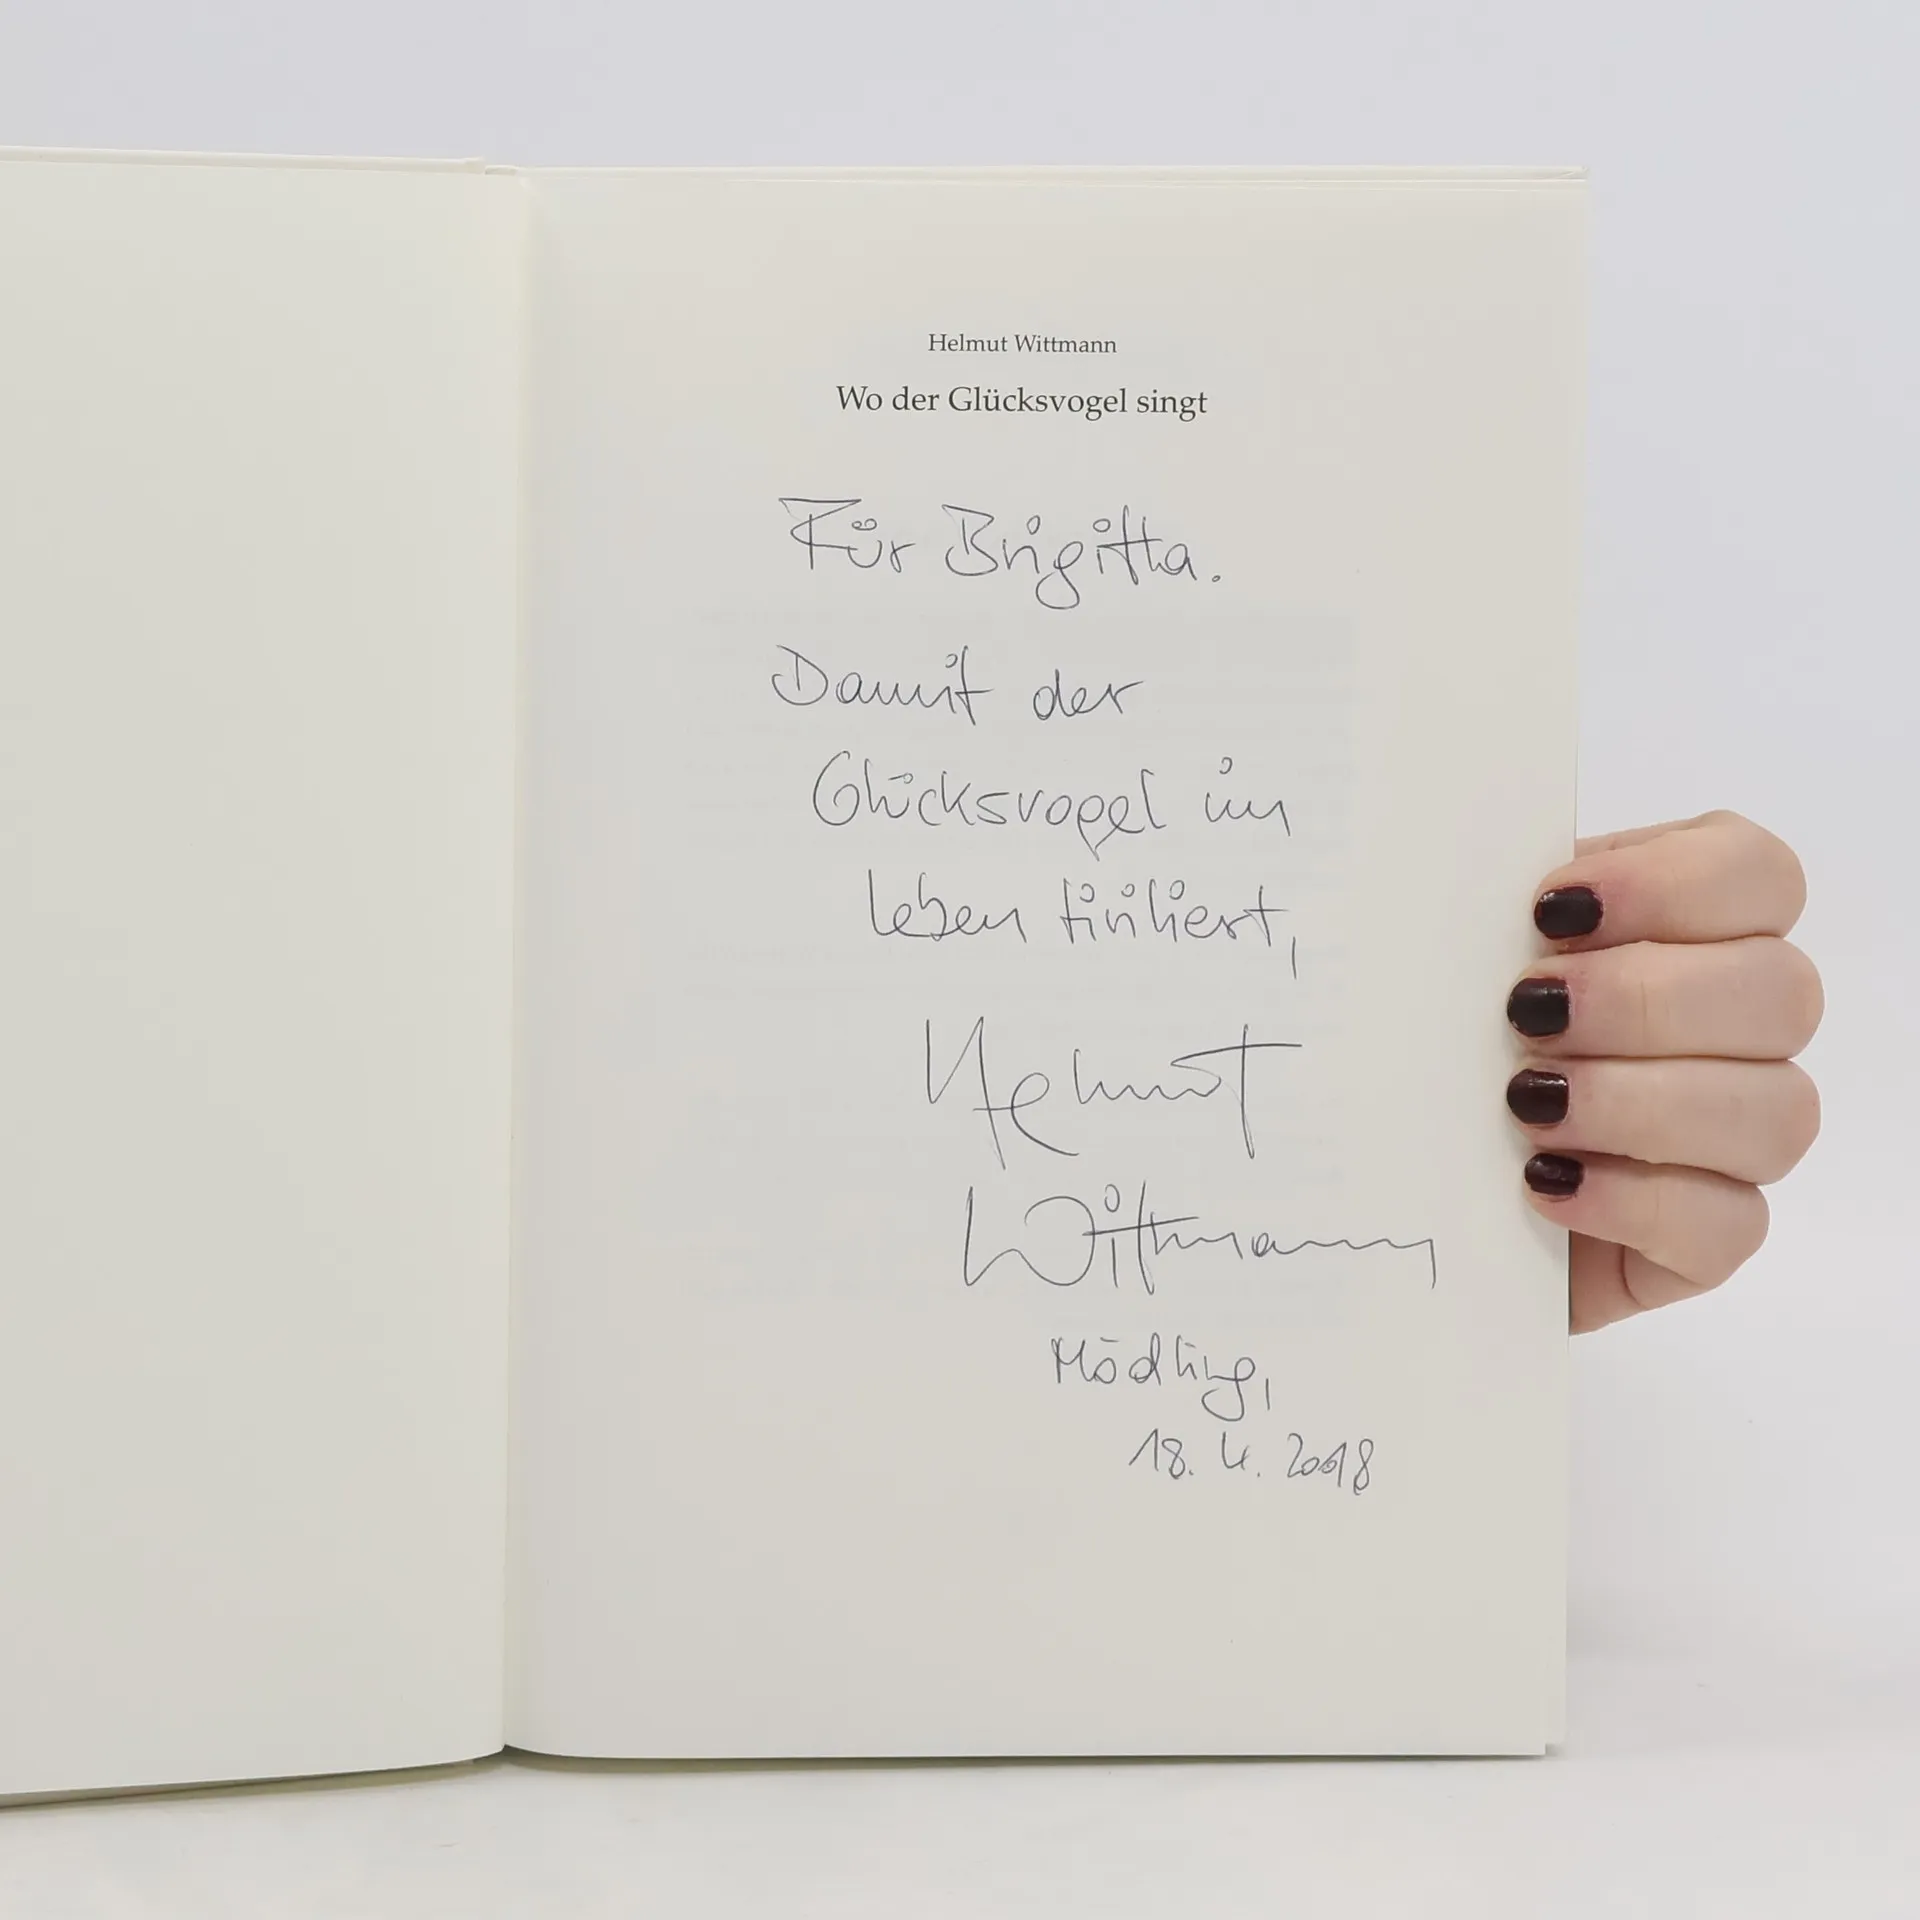 Helmut Wittmann
Wo der Glücksvogel singt
Für Brigitta.
Damit der
Glücksvogel im
Leben tiriliert,
Helmut
Wittmann
Mödling,
18. 4. 2018